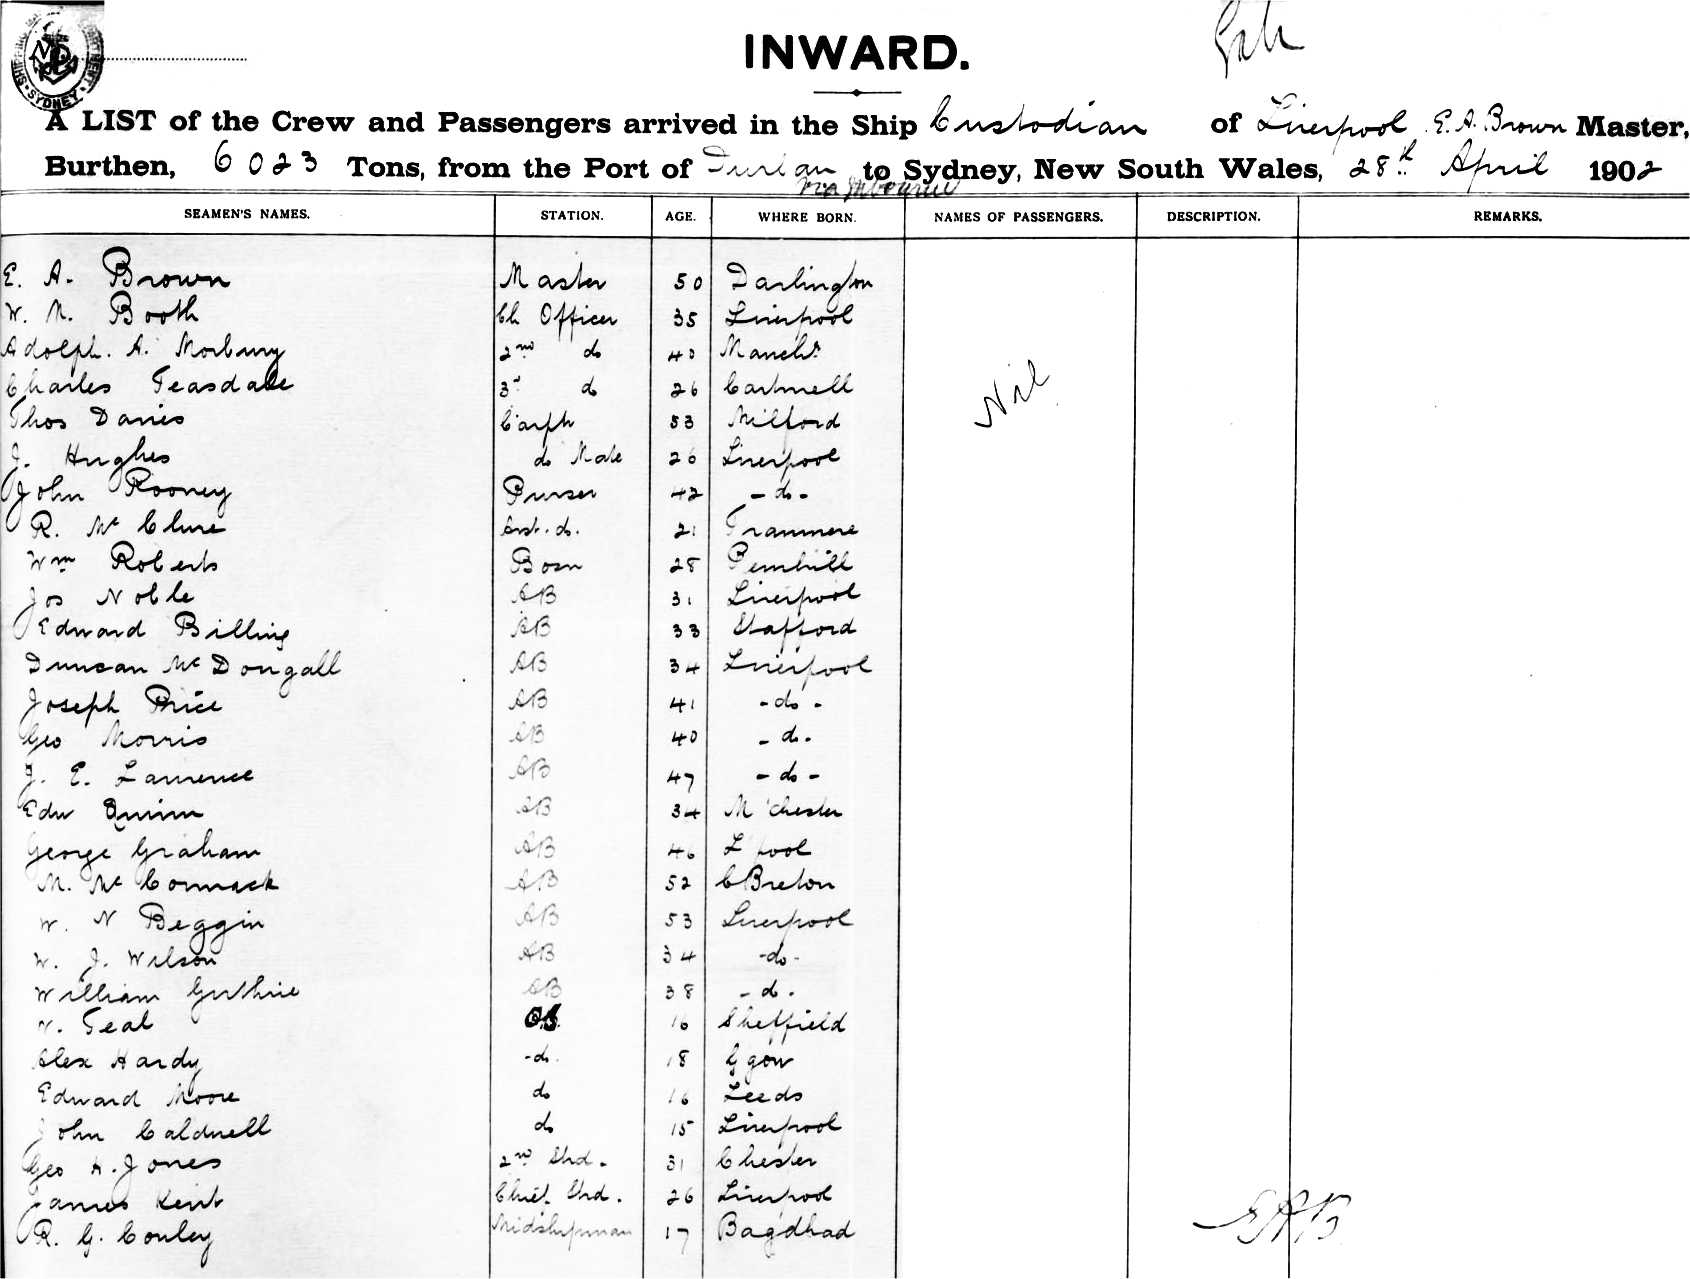 INWARD.
A LIST of the Crew and Passengers arrived in the Ship Custodian of Liverpool E. A. Brown Master,
Burthen, 6023 Tons, from the Port of Durban to Sydney, New South Wales, 28th April 1902
via Melbourne
SEAMEN'S NAMES. STATION. AGE. WHERE BORN. NAMES OF PASSENGERS. DESCRIPTION. REMARKS.
E. A. Brown Master 50 Darlington
W. N. Booth Ch Officer 35 Liverpool
Adolph. A. Morbury 2nd do 40 Manchr
Charles Teasdale 3rd do 26 Cartmell
Nil
Thos Davies Carptr 53 Milford
J. Hughes do Mate 26 Liverpool
John Rooney Purser 42 - do -
R. Mc Clure Asst. do. 21 Tranmere
Wm Roberts Bosn 28 
Jos Noble AB 31 Liverpool
Edward Billing AB 33 Stafford
Duncan Mc Dougall AB 34 Liverpool
Joseph Price AB 41 - do -
Geo Morris AB 40 - do -
J. E. Lawrence AB 47 - do -
Edw Quinn AB 34 M'chester
George Graham AB 46 L'pool
M. Mc Cormack AB 52 C Breton
W. N Beggin AB 53 Liverpool
W. J. Wilson AB 34 - do -
William Guthrie AB 38 - do -
Teal OS 16 Sheffield
Alex Hardy - do. 18 Ggow
Edward Moore do 16 Leeds
John Caldwell do 15 Liverpool
Geo H. Jones 2nd Strd. 31 Chester
James Kent Chief Strd. 26 Liverpool
R. G. Conley Midshipman 17 Bagdhad
EAB
SYDNEY